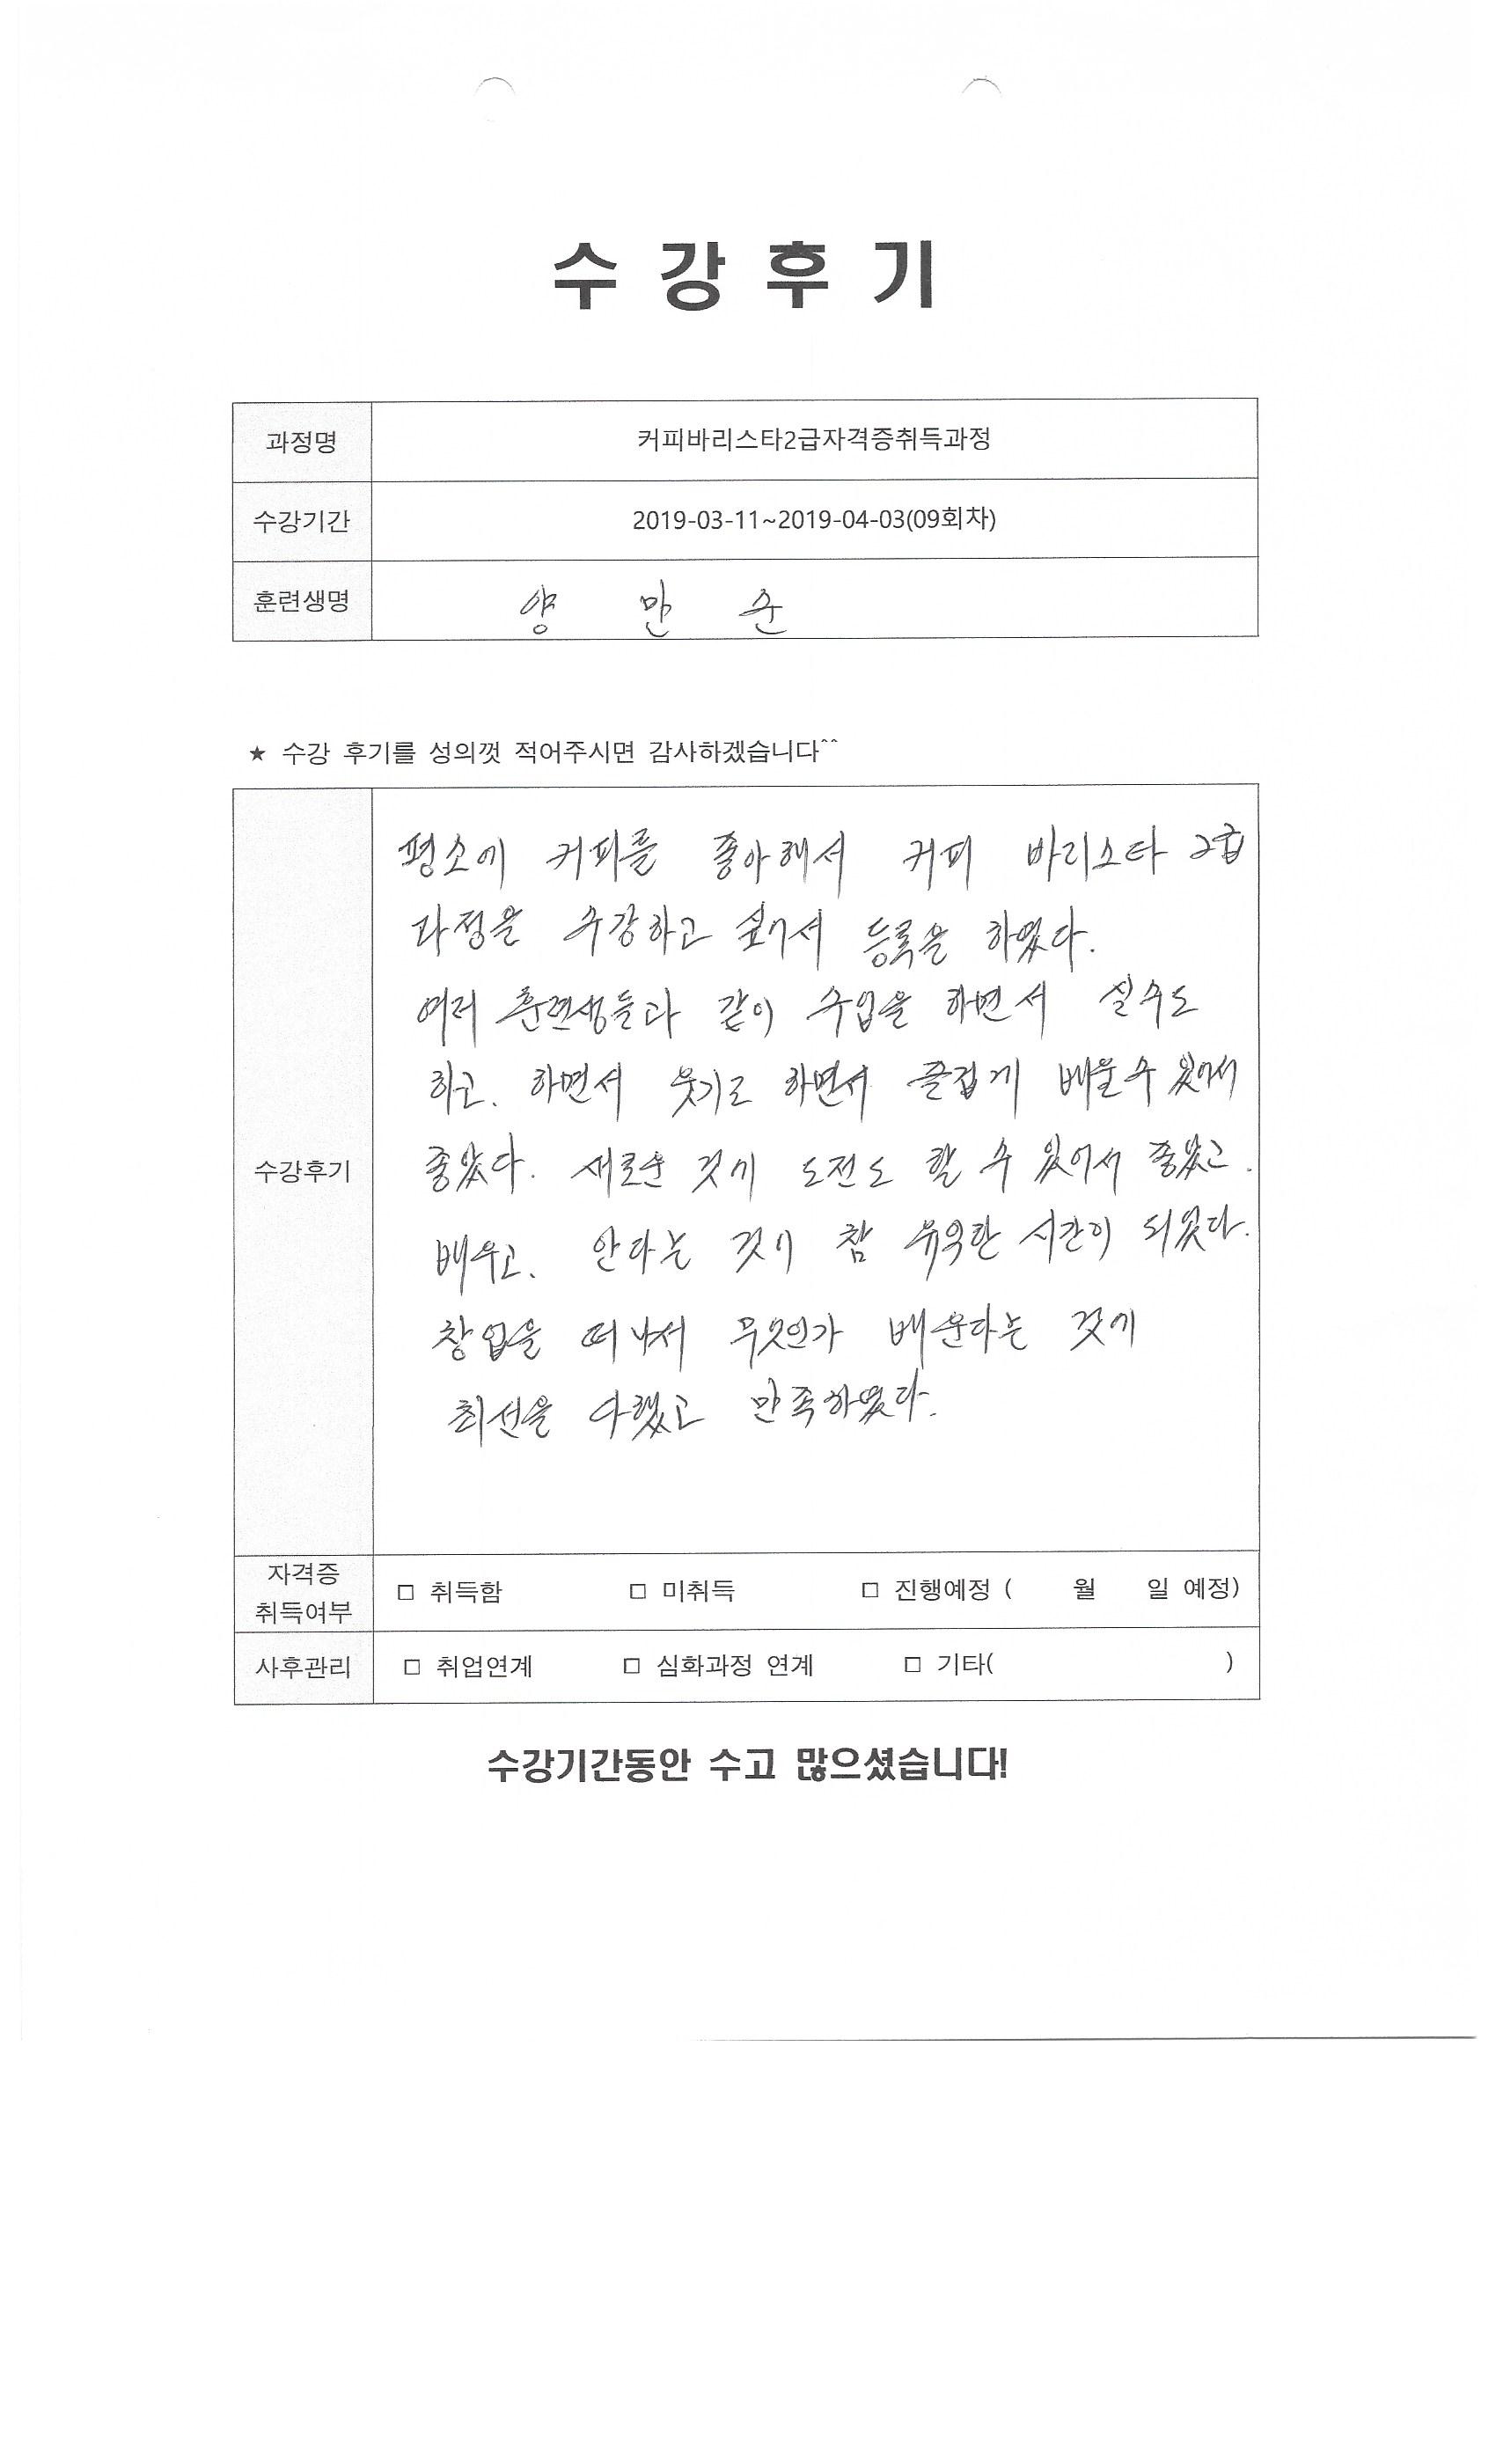 수 강 후 기
과정명 커피바리스타2급자격증취득과정
수강기간 2019-03-11~2019-04-03(09회차)
훈련생명 양 만 순
★ 수강 후기를 성의껏 적어주시면 감사하겠습니다^^
평소에 커피를 좋아해서 커피 바리스타 2급
과정을 수강하고 싶어서 등록을 하였다.
여러 훈련생들과 같이 수업을 하면서 실수도
하고. 하면서 웃기도 하면서 즐겁게 배울수 있어서
좋았다. 새로운 것에 도전도 할 수 있어서 좋았고.
배우고. 안다는 것이 참 유익한 시간이 되었다.
창업을 떠나서 무엇인가 배운다는 것에
최선을 다했고 만족하였다.
수강후기
자격증 취득여부 □ 취득함 □ 미취득 □ 진행예정 ( 월 일 예정)
사후관리 □ 취업연계 □ 심화과정 연계 □ 기타( )
수강기간동안 수고 많으셨습니다!